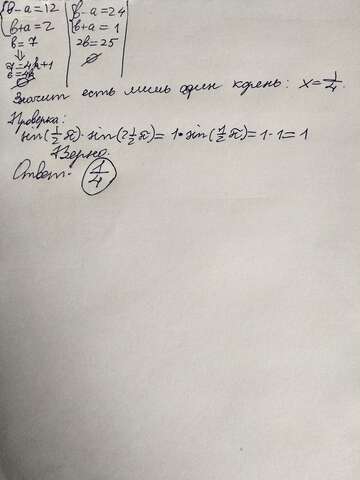 { b − a = 12 | { b − a = 24 |
b + a = 2 | b + a = 1 |
b = 7 | 2b = 25 |
⇓ ∅
7 = 4k + 1
∅
Значит есть лишь один корень: x = 1/4.
Проверка:
sin(1/2 π) · sin(2 1/2 π) = 1 · sin(1/2 π) = 1 · 1 = 1
Верно.
Ответ: 1/4